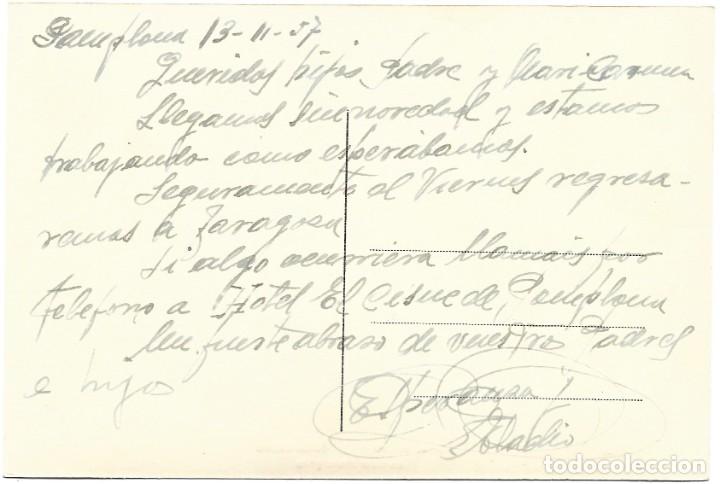 Pamplona 13-11-57
Queridos hijos, Padre y Mari Carmen
Llegamos sin novedad y estamos
trabajando como esperábamos.
Seguramente el Viernes regresa-
remos a Zaragoza
Si algo ocurriera llamais por
telefono a Hotel El Cisne de Pamplona
Un fuerte abraso de vuestros Padres
e hijos
Esperanza y
Eladio
todocoleccion.net